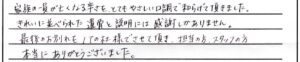 家族の一員が亡くなる辛さを、とてもやさしい口調で和らげて頂きました。
きれいに並べられた遺骨と説明には感謝しかありません。
最後のお別れを 様でさせて頂き、担当の方、スタッフの方
本当にありがとうございました。